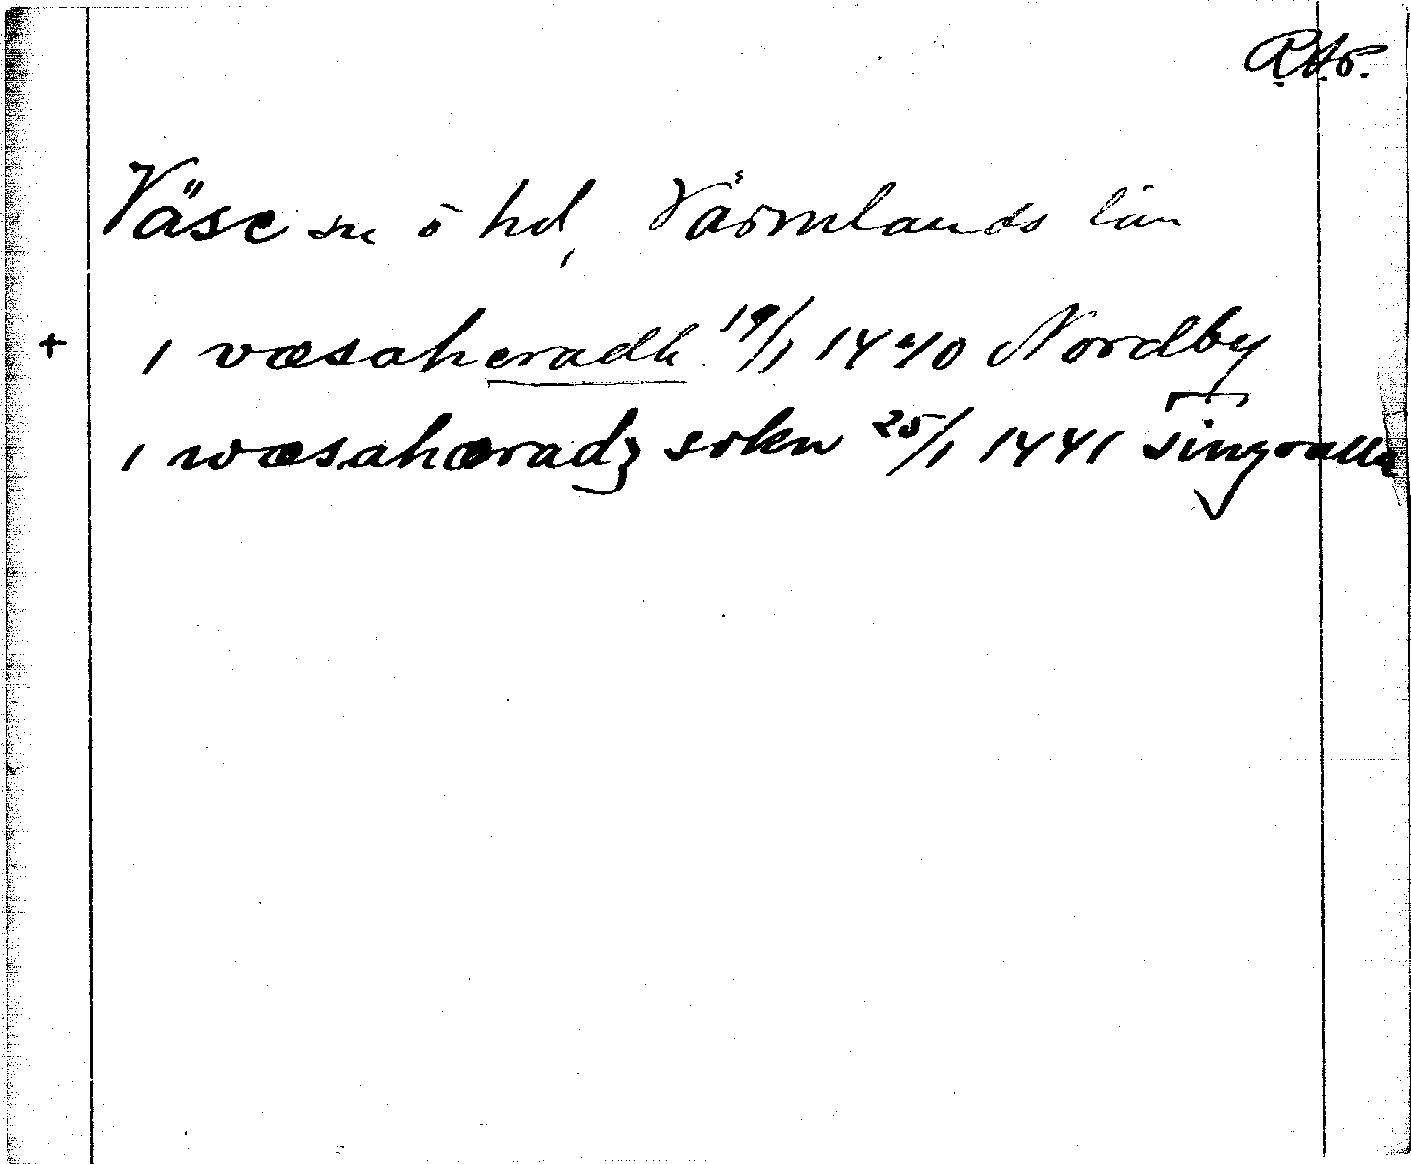 RAp.
Väse sn o hd, Värmlands län
+ i væsaheradh 19/1 1440 Nordby
i wæsahæradz sokn 25/1 1441 Tingvalla